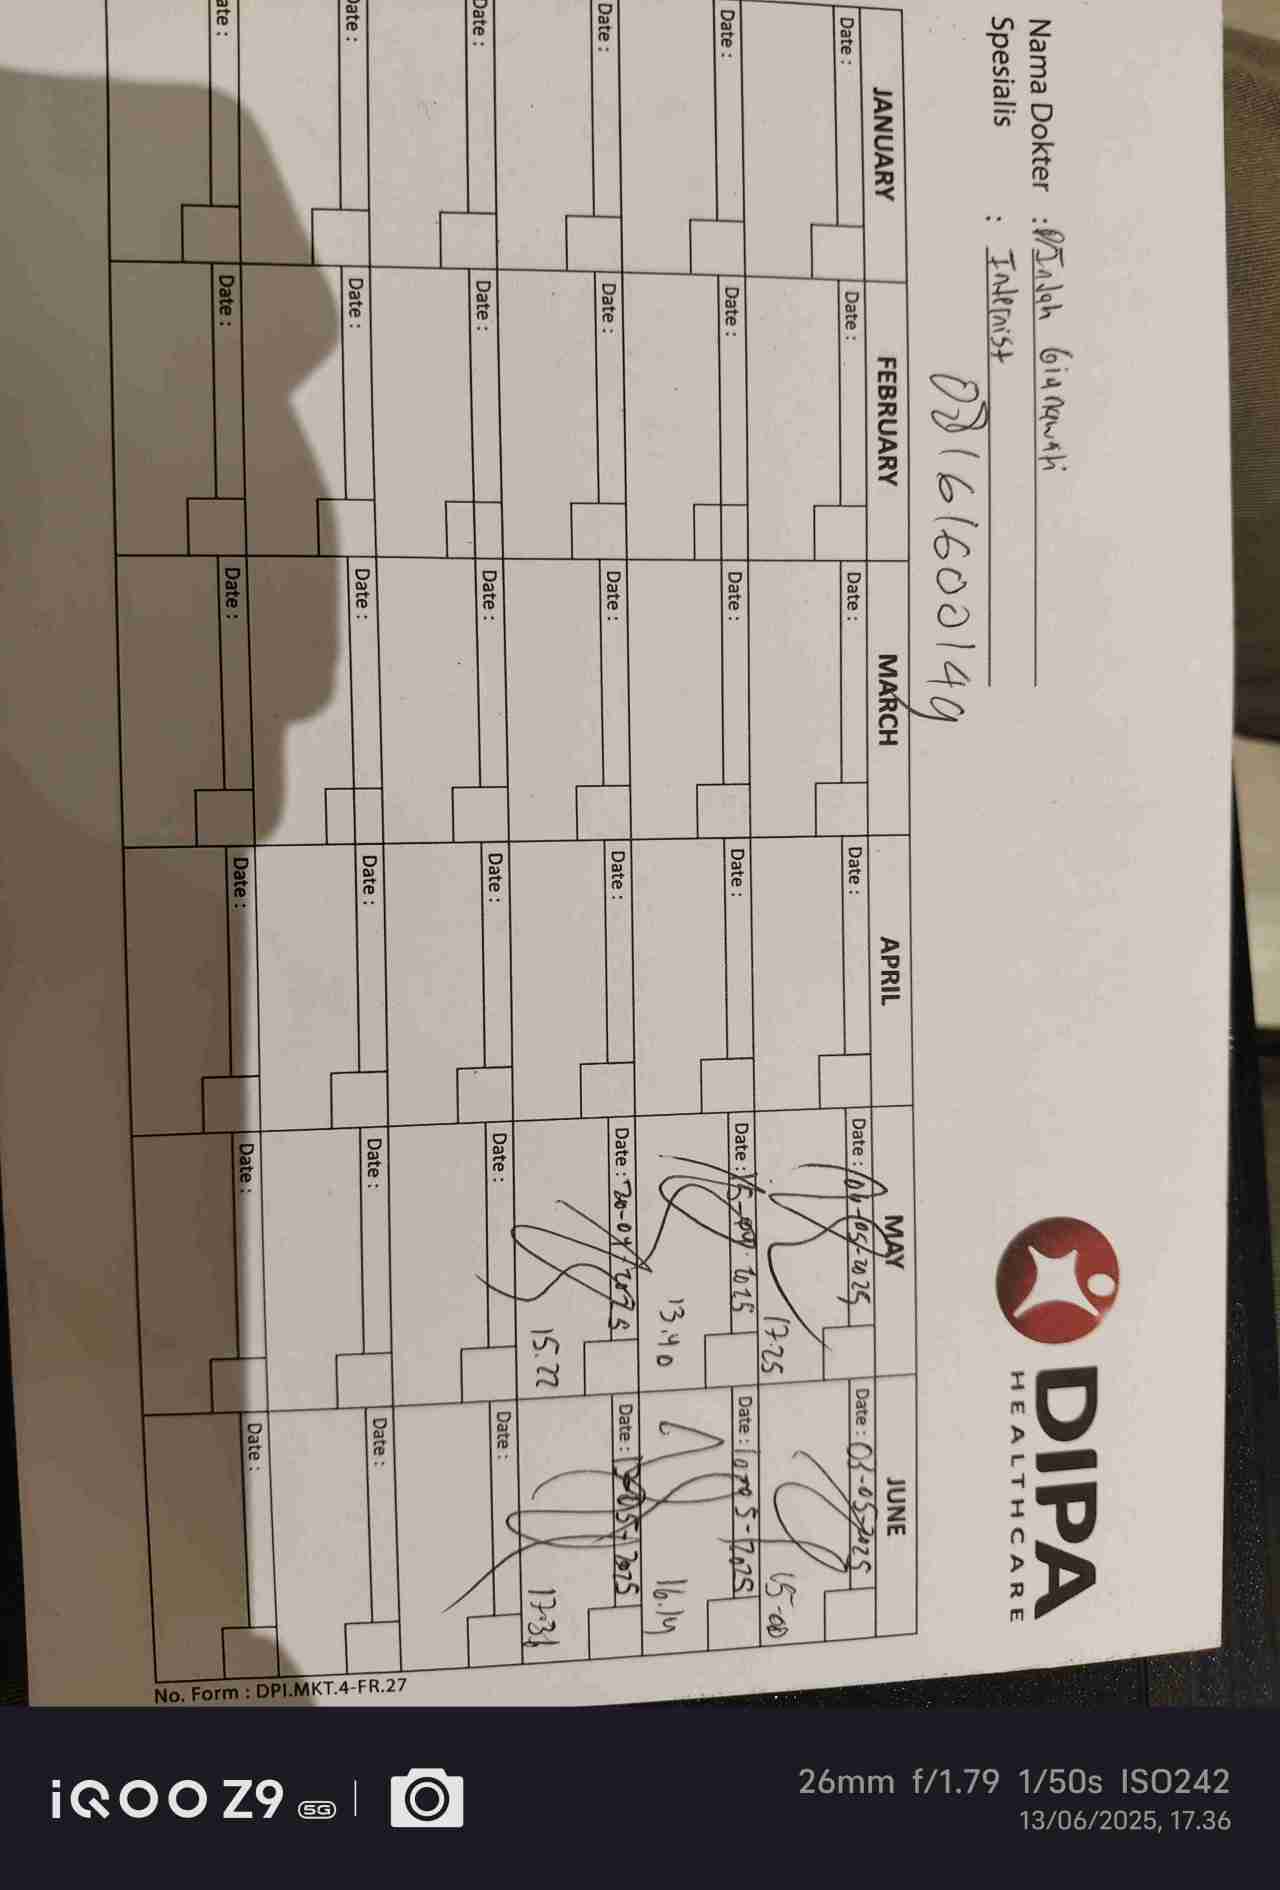 Nama Dokter : Indah Gianawati
Spesialis : Internist
081616600149
DIPA
HEALTHCARE
JANUARY FEBRUARY MARCH APRIL MAY JUNE
Date : Date : Date : Date : Date : 04-05-2025 Date : 03-05-2025
17.25 15-00
Date : Date : Date : Date : Date : 15-04-2025 Date : 10-05-2025
13.40 16.14
Date : Date : Date : Date : Date : 20-04-2025 Date : 13-05-2025
15.22 17.31
Date : Date : Date : Date : Date : Date :
Date : Date : Date : Date : Date : Date :
ate : Date : Date : Date : Date : Date :
No. Form : DPI.MKT.4-FR.27
iQOO Z9 5G
26mm f/1.79 1/50s ISO242
13/06/2025, 17.36